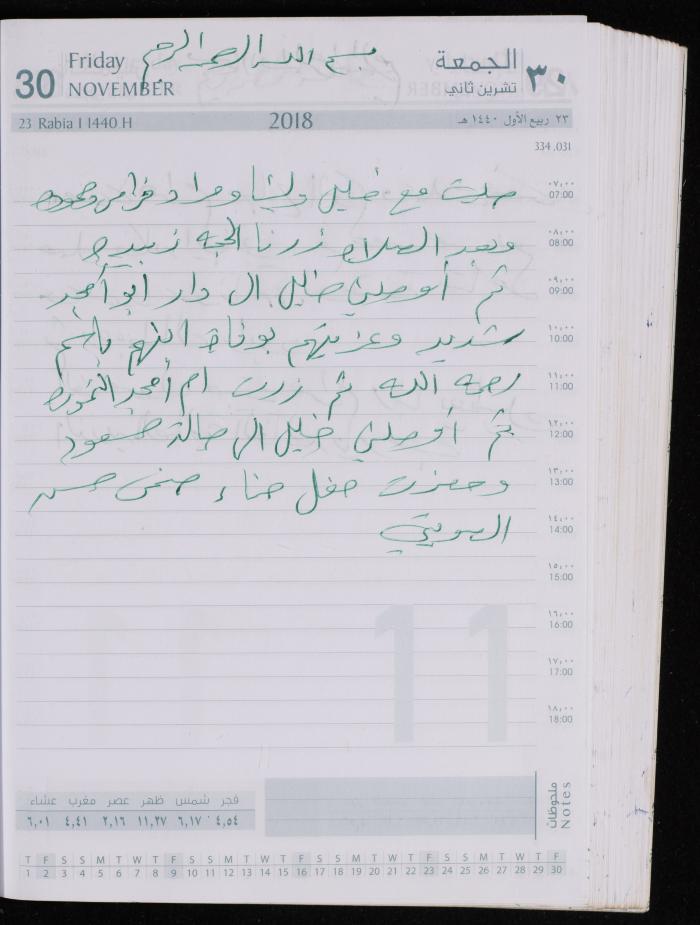 بسم الله الرحمن الرحيم
Friday
30 NOVEMBER
الجمعة
٣٠ تشرين ثاني
23 Rabia I 1440 H
2018
٢٣ ربيع الأول ١٤٤٠ هـ
334 .031
٠٧,٠٠
07:00
صليت مع خليل ومراد فراس
٠٨,٠٠
08:00
وبعد الصلاه زرنا الحجه زبيده
٠٩,٠٠
09:00
ثم أوصلني خليل الى دار ابو أمجد
١٠,٠٠
10:00
شديد وعزيتهم بوفاة ابنهم باسم
١١,٠٠
11:00
رحمه الله ثم زرت ام أمجد
١٢,٠٠
12:00
ثم أوصلني خليل الى صالة مسعود
١٣,٠٠
13:00
وحضرت حفل حناء حسن
١٤,٠٠
14:00
١٥,٠٠
15:00
١٦,٠٠
16:00
11
١٧,٠٠
17:00
١٨,٠٠
18:00
ملحوظات
Notes
فجر شمس ظهر عصر مغرب عشاء
٤,٥٤ ٦,١٧ ١١,٢٧ ٢,١٦ ٤,٤١ ٦,٠١
T F S S M T W T F S S M T W T F S S M T W T F S S M T W T F
1 2 3 4 5 6 7 8 9 10 11 12 13 14 15 16 17 18 19 20 21 22 23 24 25 26 27 28 29 30